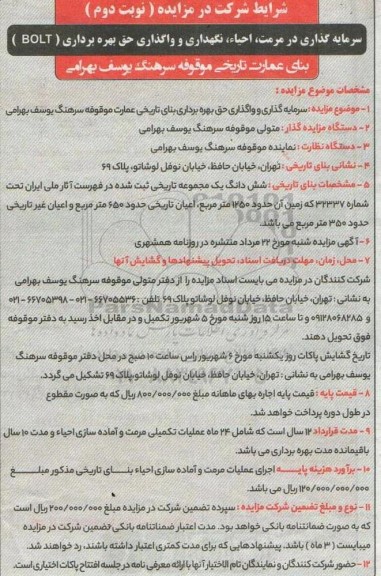 شرایط شرکت در مزایده ( نوبت دوم )
سرمایه گذاری در مرمت، احیاء، نگهداری و واگذاری حق بهره برداری ( BOLT )
بنای عمارت تاریخی موقوفه سرهنگ یوسف بهرامی
مشخصات موضوع مزایده :
۱- موضوع مزایده : سرمایه گذاری و واگذاری حق بهره برداری بنای تاریخی عمارت موقوفه سرهنگ یوسف بهرامی
۲- دستگاه مزایده گذار : متولی موقوفه سرهنگ یوسف بهرامی
۳- دستگاه نظارت : نماینده موقوفه سرهنگ یوسف بهرامی
۴- نشانی بنای تاریخی : تهران، خیابان حافظ، خیابان نوفل لوشاتو، پلاک ۶۹
۵- مشخصات بنای تاریخی : شش دانگ یک مجموعه تاریخی ثبت شده در فهرست آثار ملی ایران تحت
شماره ۳۲۳۳۷ که زمین آن حدود ۱۲۵۰ متر مربع، اعیان تاریخی حدود ۶۵۰ متر مربع و اعیان غیر تاریخی
حدود ۳۵۰ متر مربع می باشد.
۶- آگهی مزایده شنبه مورخ ۲۲ مرداد منتشره در روزنامه همشهری
۷- محل، زمان، مهلت دریافت اسناد، تحویل پیشنهادها و گشایش آنها
شرکت کنندگان در مزایده می بایست اسناد مزایده را از دفتر متولی موقوفه سرهنگ یوسف بهرامی
به نشانی : تهران، خیابان حافظ، خیابان نوفل لوشاتو پلاک ۶۹ تلفن : ۶۶۷۰۵۵۳۶-۰۲۱ ، ۶۶۷۰۵۳۹۸-۰۲۱
و ۰۹۱۲۸۰۶۸۲۸۵ و تا ساعت ۱۵ روز شنبه مورخ ۵ شهریور تکمیل و در مقابل اخذ رسید به دفتر موقوفه
فوق تحویل دهند.
تاریخ گشایش پاکات روز یکشنبه مورخ ۶ شهریور راس ساعت ۱۰ صبح در محل دفتر موقوفه سرهنگ
یوسف بهرامی به نشانی : تهران، خیابان حافظ، خیابان نوفل لوشاتو، پلاک ۶۹ تشکیل می گردد.
۸- قیمت پایه : قیمت پایه اجاره بهای ماهانه مبلغ ۸۰۰/۰۰۰/۰۰۰ ریال که به صورت مقطوع
در طول دوره پرداخت خواهد شد.
۹- مدت قرارداد ۱۲ سال است که شامل ۲۴ ماه عملیات تکمیلی مرمت و آماده سازی احیاء و مدت ۱۰ سال
باقیمانده مدت بهره برداری می باشد.
۱۰- برآورد هزینه پایـــه اجرای عملیات مرمت و آماده سازی احیاء بنـــای تاریخی مذکور مبلـــغ
۱۲۰/۰۰۰/۰۰۰/۰۰۰ ریال می باشد.
۱۱- نوع و مبلغ تضمین شرکت مزایده : سپرده تضمین شرکت در مزایده مبلغ ۲۰۰/۰۰۰/۰۰۰ ریال است
که به صورت ضمانتنامه بانکی خواهد بود. مدت اعتبار ضمنانتنامه بانکی تضمین شرکت در مزایده
میبایست ( ۳ ماه ) باشد. پیشنهادهایی که برای مدت کمتری اعتبار داشته باشند، رد خواهند شد.
۱۲- حضور شرکت کنندگان و نمایندگان تام الاختیار آنها با ارائه معرفی نامه در جلسه افتتاح پاکات اختیاری است.